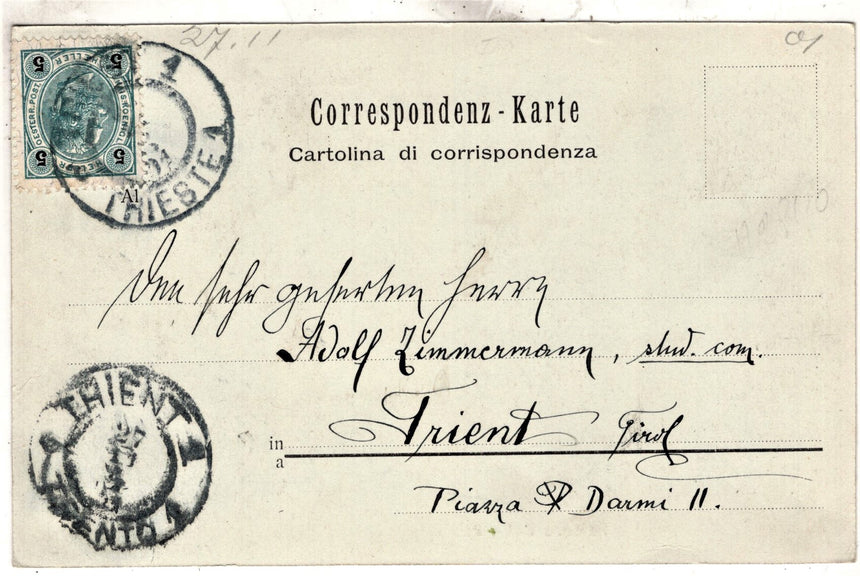 27.11
5 5
OESTERR. POST.
5 5
1
TRIESTE 1
Al
Correspondenz - Karte
Cartolina di corrispondenza
Den sehr geherten Herrn
Adolf Zimmermann, stud. com.
in Trient Tirol
a
Piazza Darmi 11.
TRIENT 1
TRENTO 1